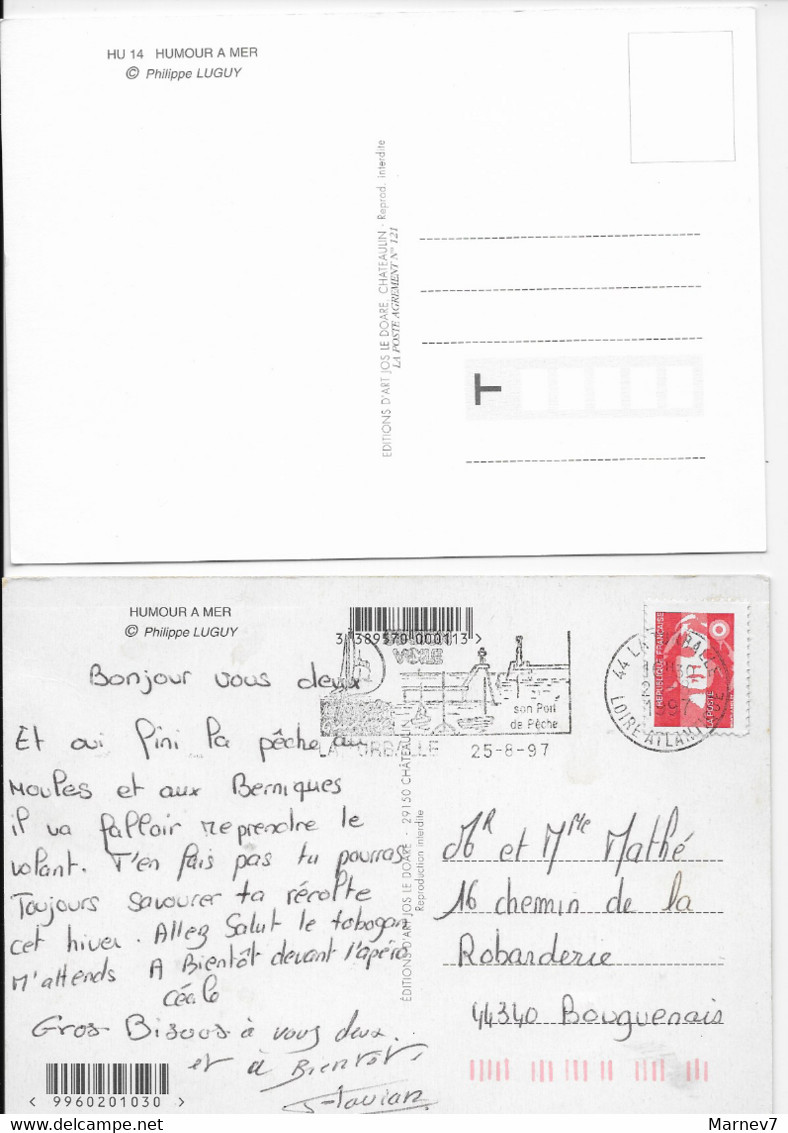 HU 14 HUMOUR A MER
© Philippe LUGUY
EDITIONS D'ART JOS LE DOARE, CHATEAULIN - Reprod. interdite
LA POSTE AGREMENT N° 121
T
HUMOUR A MER
© Philippe LUGUY
3 389570 000113 >
VOILE
son Port
de Pêche
25-8-97
44 LA
LOIRE ATLANTIQUE
REPUBLIQUE FRANÇAISE
LA POSTE
EDITIONS D'ART JOS LE DOARE - 29150 CHÂTEAULIN
Reproduction interdite
Bonjour vous deux
Et oui fini la pêche au
Moules et aux Berniques
il va falloir reprendre le
volant. T'en fais pas tu pourras
Toujours savourer ta récolte
cet hiver. Allez Salut le tobogan
M'attends A Bientôt devant l'apéro
Gros Bisous à vous deux.
et à Bientôt.
Mr et Mme Mathé
16 chemin de la
Robarderie
44340 Bouguenais
< 9960201030 >
Marnev7